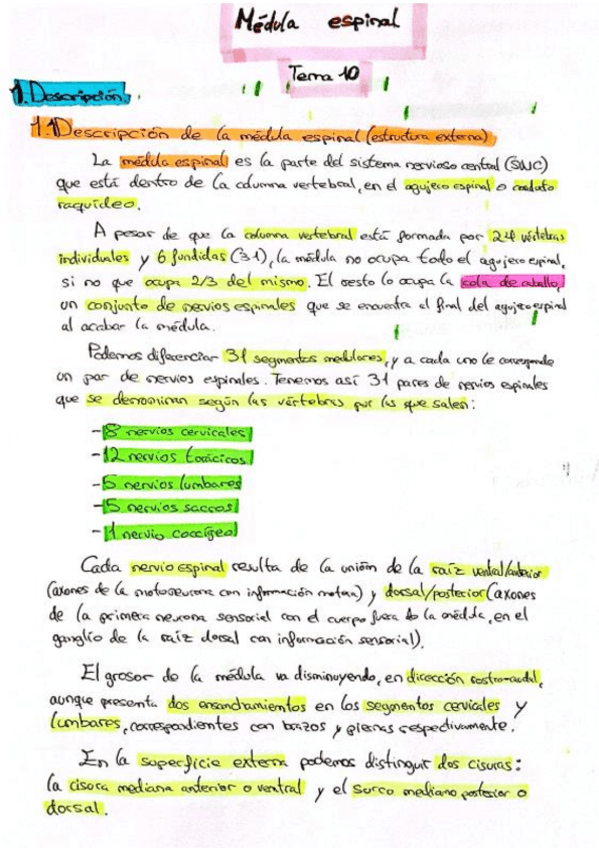 Médula espinal
Tema 10
1. Descripción.
1.1 Descripción de la médula espinal (estructura externa)
La médula espinal es la parte del sistema nervioso central (SNC)
que está dentro de la columna vertebral, en el agujero espinal o conducto
raquídeo.
A pesar de que la columna vertebral está formada por 24 vértebras
individuales y 6 fundidas (31), la médula no ocupa todo el agujero espinal,
si no que ocupa 2/3 del mismo. El resto lo ocupa la cola de caballo,
un conjunto de nervios espinales que se encuentra al final del agujero espinal
al acabar la médula.
Podemos diferenciar 31 segmentos medulares, y a cada uno le corresponde
un par de nervios espinales. Tenemos así 31 pares de nervios espinales
que se denominan según las vértebras por las que salen:
- 8 nervios cervicales
- 12 nervios torácicos
- 5 nervios lumbares
- 5 nervios sacros
- 1 nervio coccígeo
Cada nervio espinal resulta de la unión de la raíz ventral/anterior
(axones de la motoneurona con información motora) y dorsal/posterior (axones
de la primera neurona sensorial con el cuerpo fuera de la médula, en el
ganglio de la raíz dorsal con información sensorial).
El grosor de la médula va disminuyendo, en dirección rostro-caudal,
aunque presenta dos ensanchamientos en los segmentos cerviales y
lumbares, correspondientes con brazos y piernas respectivamente.
En la superficie externa podemos distinguir dos cisuras:
la cisura mediana anterior o ventral y el surco mediano posterior o
dorsal.